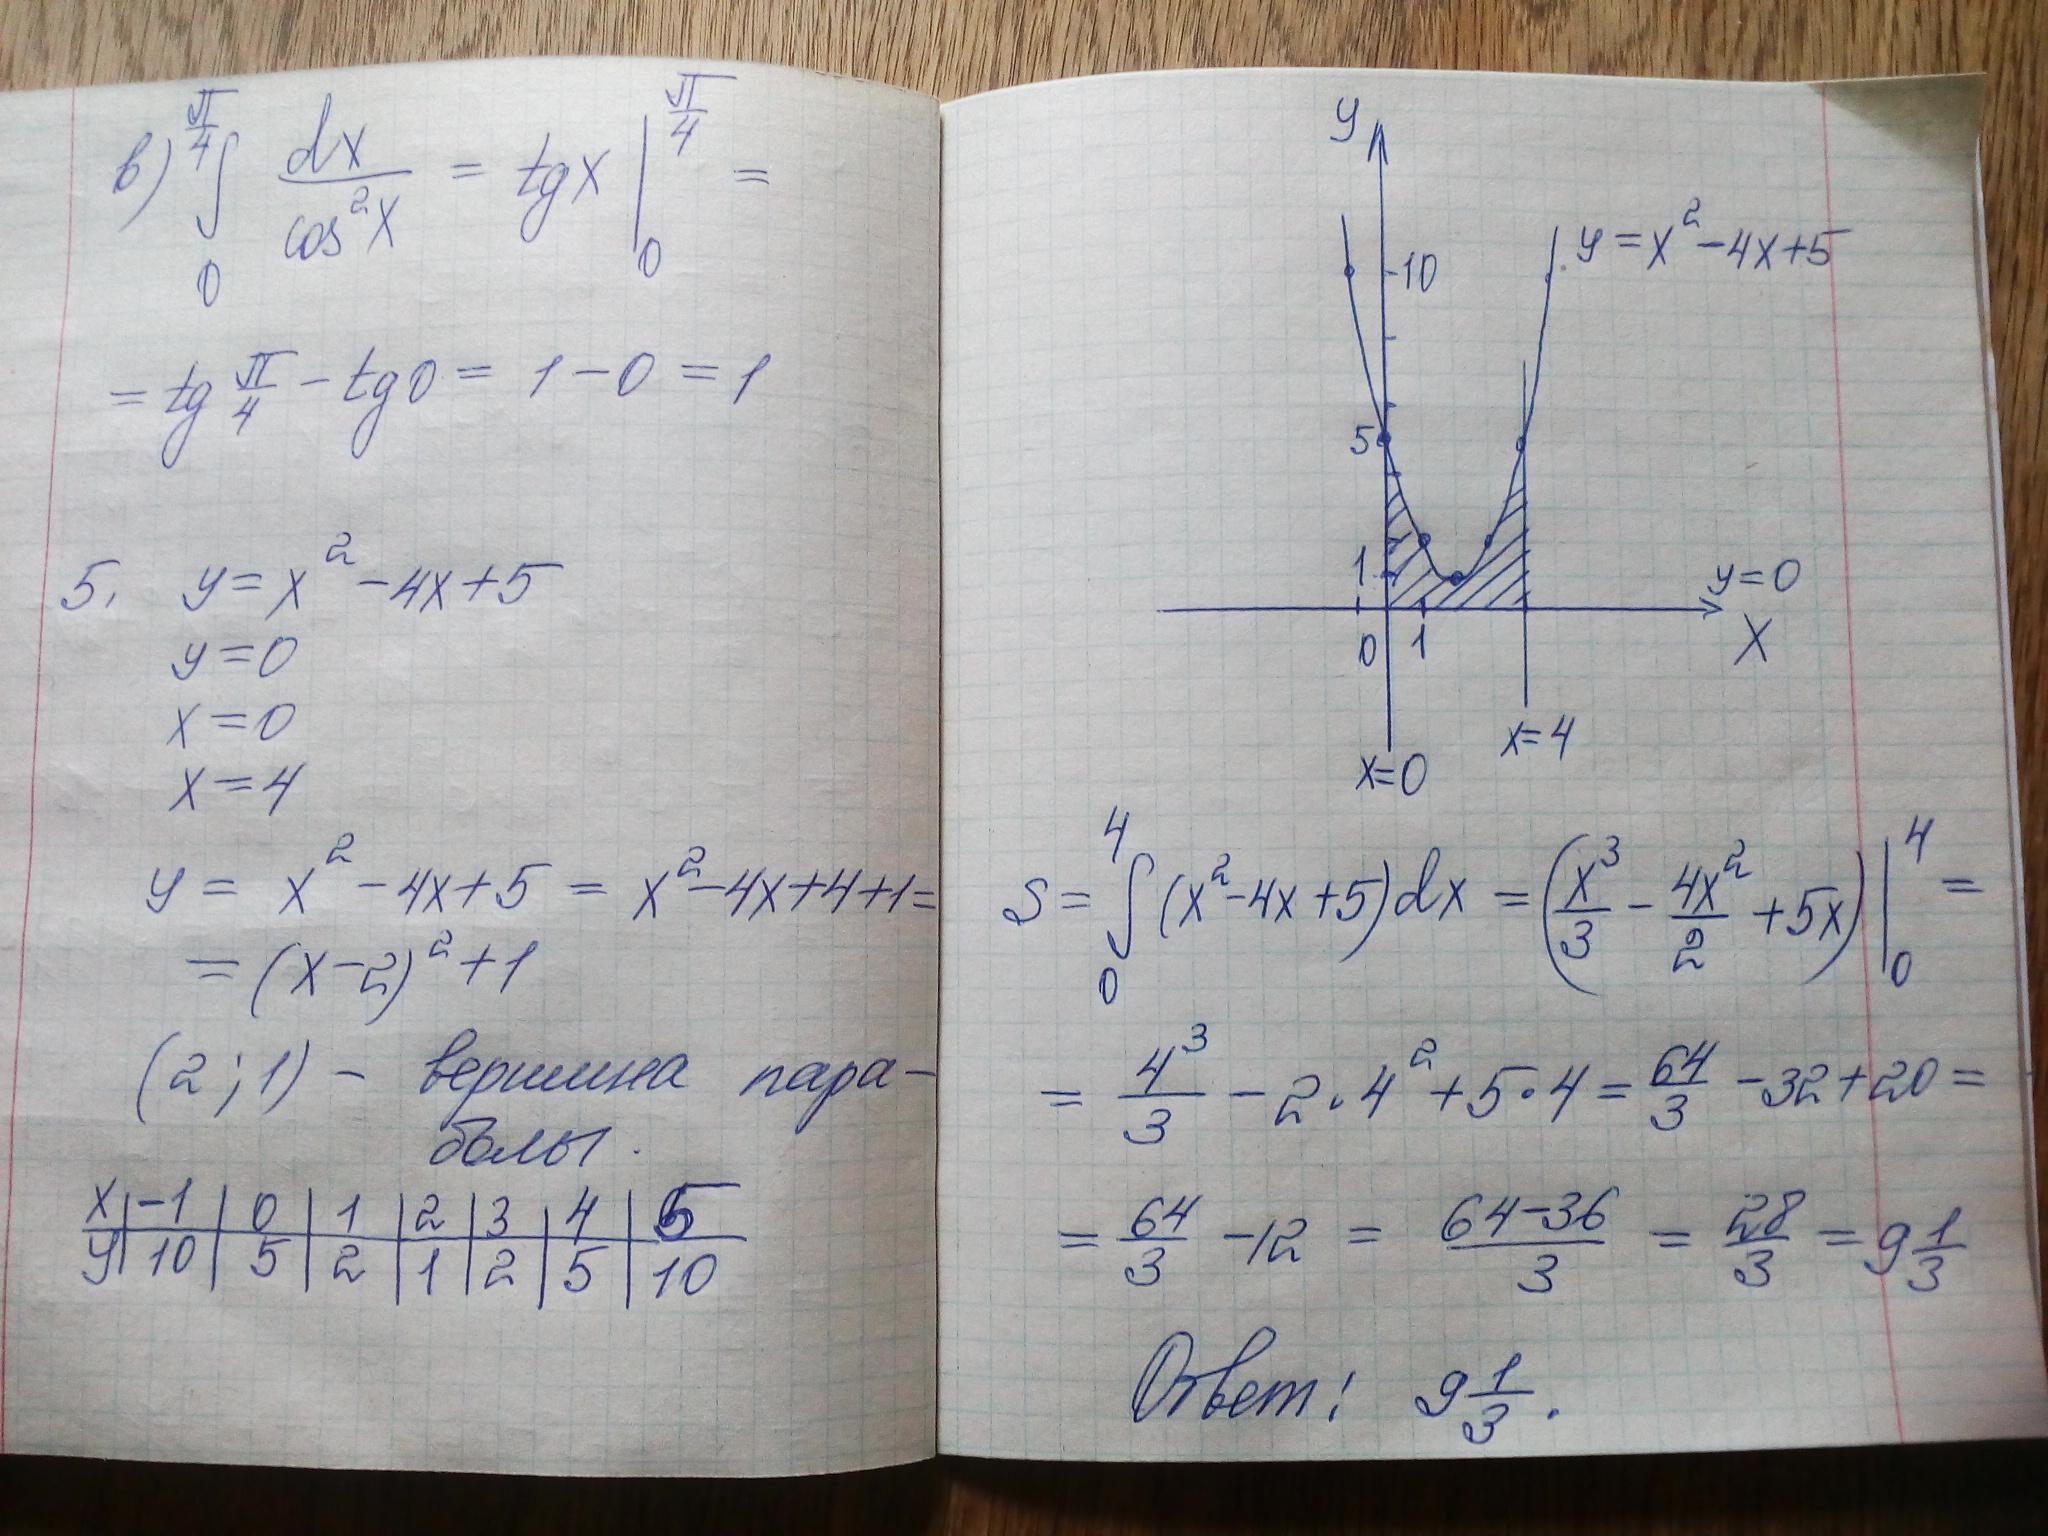 в) ∫₀^{π/4} dx/cos²x = tgx |₀^{π/4} =
= tg π/4 − tg0 = 1 − 0 = 1
5. y = x² − 4x + 5
y = 0
x = 0
x = 4
y = x² − 4x + 5 = x² − 4x + 4 + 1 =
= (x − 2)² + 1
(2; 1) − вершина пара-
болы.
x | −1 | 0 | 1 | 2 | 3 | 4 | 5
y | 10 | 5 | 2 | 1 | 2 | 5 | 10
y
y = x² − 4x + 5
10
5
1
y = 0
0 1 x
x = 4
x = 0
S = ∫₀⁴ (x² − 4x + 5)dx = (x³/3 − 4x²/2 + 5x) |₀⁴ =
= 4³/3 − 2·4² + 5·4 = 64/3 − 32 + 20 =
= 64/3 − 12 = (64 − 36)/3 = 28/3 = 9 1/3
Ответ: 9 1/3.